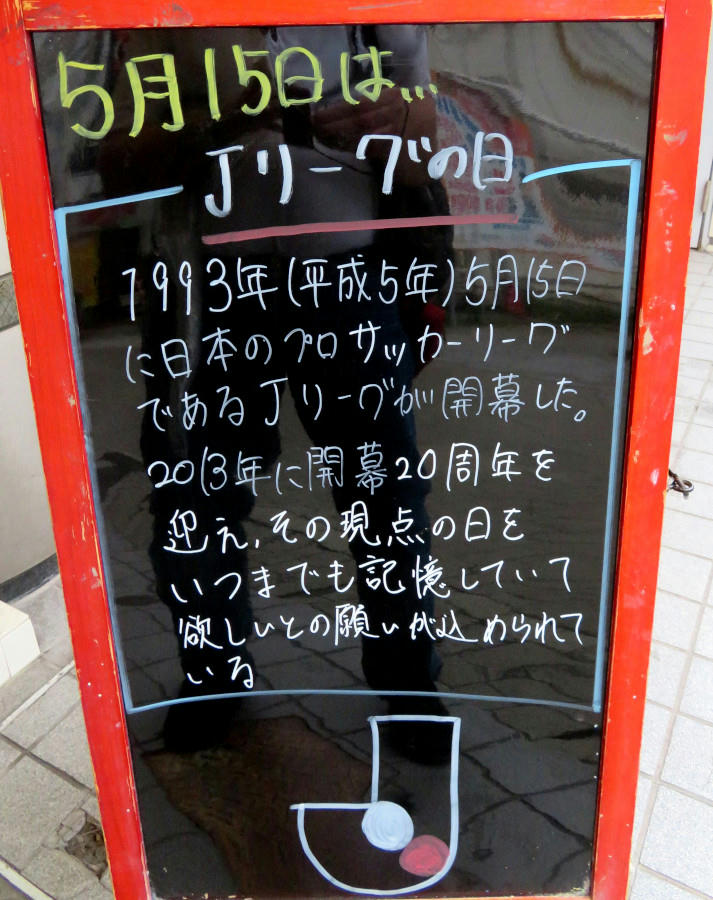 5月15日は...
Jリーグの日
1993年(平成5年)5月15日
に日本のプロサッカーリーグ
であるJリーグが開幕した。
2013年に開幕20周年を
迎え,その現点の日を
いつまでも記憶していて
欲しいとの願いが込められて
いる